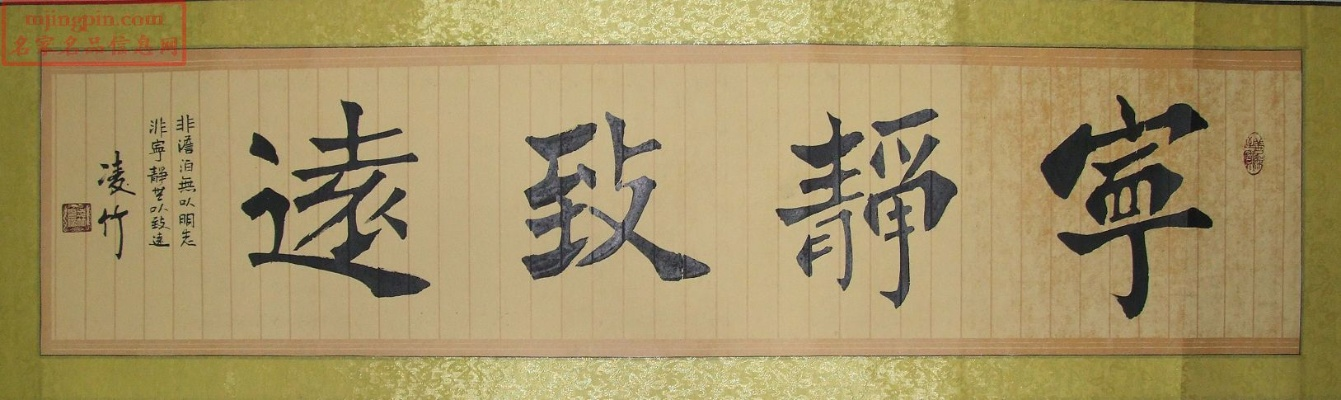 mjingpin.com
名家名品信息网
寧靜致遠
非澹泊無以明志
非寧靜無以致遠
凌竹